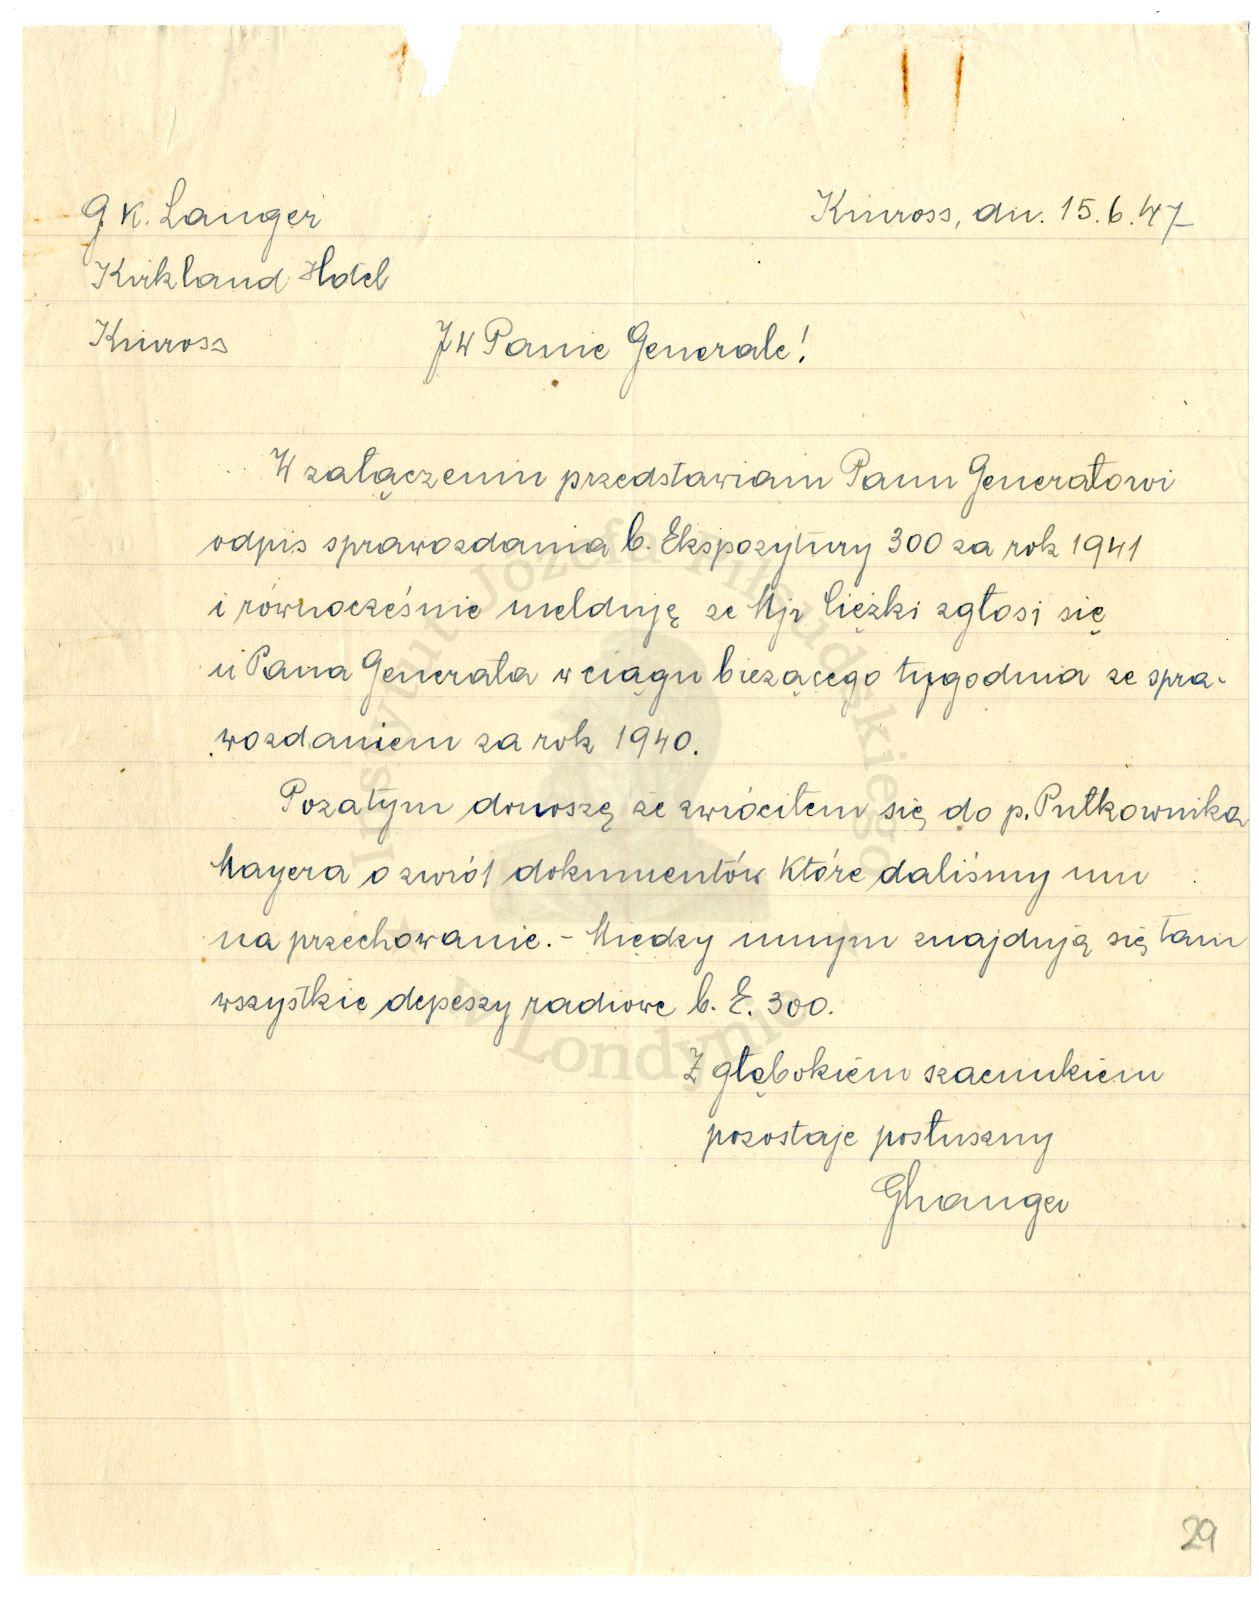 G. K. Langer
Kinross, dn. 15.6.47
Kirkland Hotel
Kinross
JW Panie Generale!
W załączeniu przedstawiam Panu Generałowi
odpis sprawozdania b. Ekspozytury 300 za rok 1941
i równocześnie melduję ze Mjr Ciężki zgłosi się
u Pana Generała w ciągu bieżącego tygodnia ze spra-
wozdaniem za rok 1940.
Pozatym donoszę że zwróciłem się do p. Pułkownika
Mayera o zwrót dokumentów które daliśmy mu
na przechowanie. - Między innym znajdują się tam
wszystkie depeszy radiowe b. E. 300.
Z głębokiem szacunkiem
pozostaje posłuszny
GLanger
29
Instytut Józefa Piłsudskiego
w Londynie